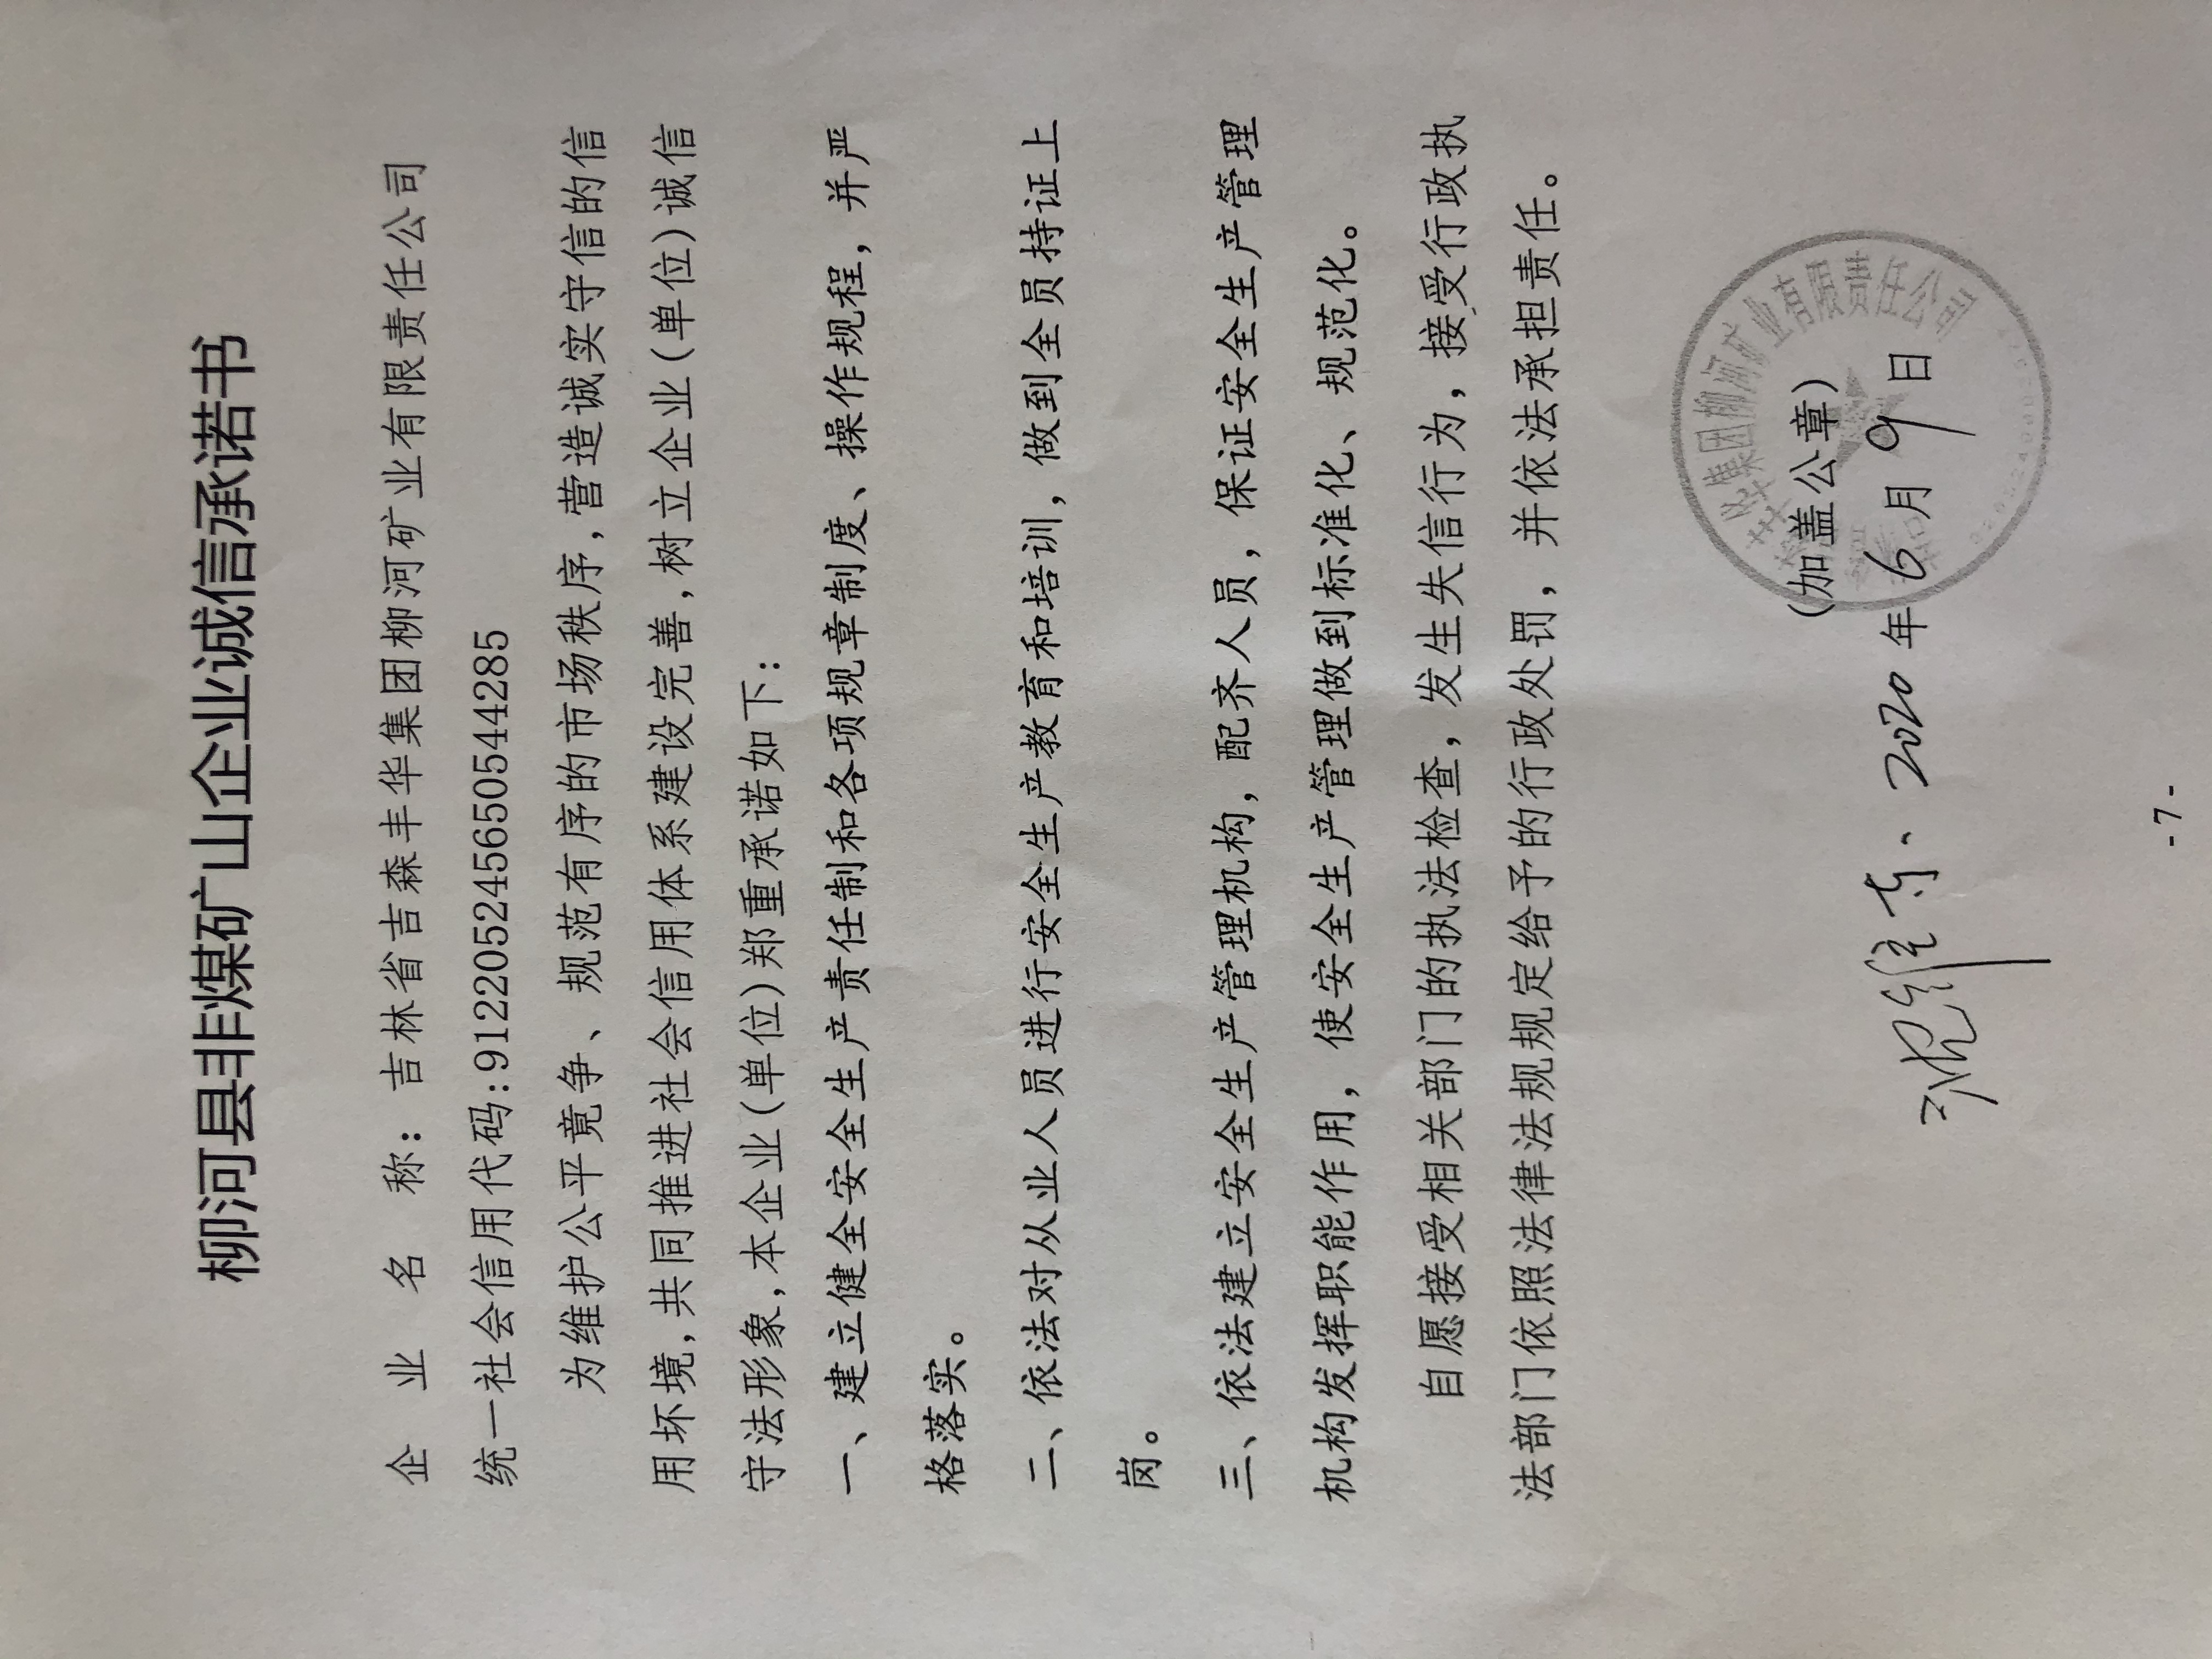 柳河县非煤矿山企业诚信承诺书
企 业 名 称：吉林省吉森丰华集团柳河矿业有限责任公司
统一社会信用代码:912205245650544285
为维护公平竟争、规范有序的市场秩序,营造诚实守信的信
用坏境,共同推进社会信用体系建设完善,树立企业(单位)诚信
守法形象,本企业(单位)郑重承诺如下:
一、建立健全安全生产责任制和各项规章制度、操作规程，并严
格落实。
二、依法对从业人员进行安全生产教育和培训，做到全员持证上
岗。
三、依法建立安全生产管理机构，配齐人员，保证安全生产管理
机构发挥职能作用，使安全生产管理做到标准化、规范化。
自愿接受相关部门的执法检查，发生失信行为，接受行政执
法部门依照法律法规规定给予的行政处罚，并依法承担责任。
集团柳河矿业有限责任公司
（加盖公章）
2020年6月9日
-7-